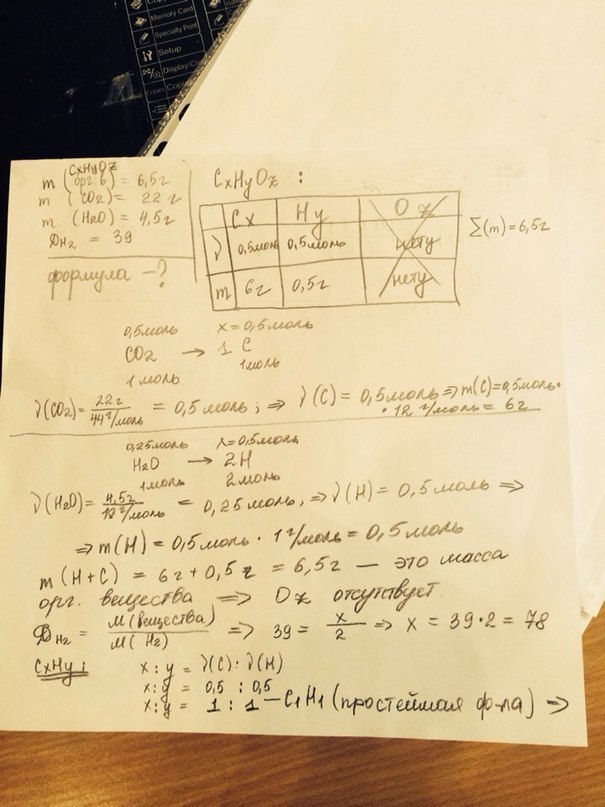 Memory Card
Specialty Print
Setup
Display/Co
Copies Cop
CxHyOz
m (орг. в) = 6,5г
m (CO2) = 22 г
m (H2O) = 4,5г
DH2 = 39
формула - ?
CxHyOz :
Cx Hy Oz
ν 0,5моль 0,5моль нету
m 6г 0,5г нету
Σ(m) = 6,5г
0,5моль x = 0,5моль
CO2 → 1 C
1 моль 1моль
ν(CO2) = 22г / 44г/моль = 0,5моль ; ⇒ ν(C) = 0,5моль ⇒ m(C) = 0,5моль·
· 12 г/моль = 6г
0,25моль x = 0,5моль
H2O → 2H
1моль 2моль
ν(H2O) = 4,5г / 18г/моль = 0,25моль, ⇒ ν(H) = 0,5моль ⇒
⇒ m(H) = 0,5моль · 1г/моль = 0,5моль
m(H+C) = 6г + 0,5г = 6,5г — это масса
орг. вещества ⇒ Oz отсутствует.
DH2 = M(вещества) / M(H2) ⇒ 39 = x/2 ⇒ x = 39·2 = 78
CxHy : x : y = ν(C) : ν(H)
x:y = 0,5 : 0,5
x:y = 1 : 1 — C1H1 (простейшая ф-ла) ⇒